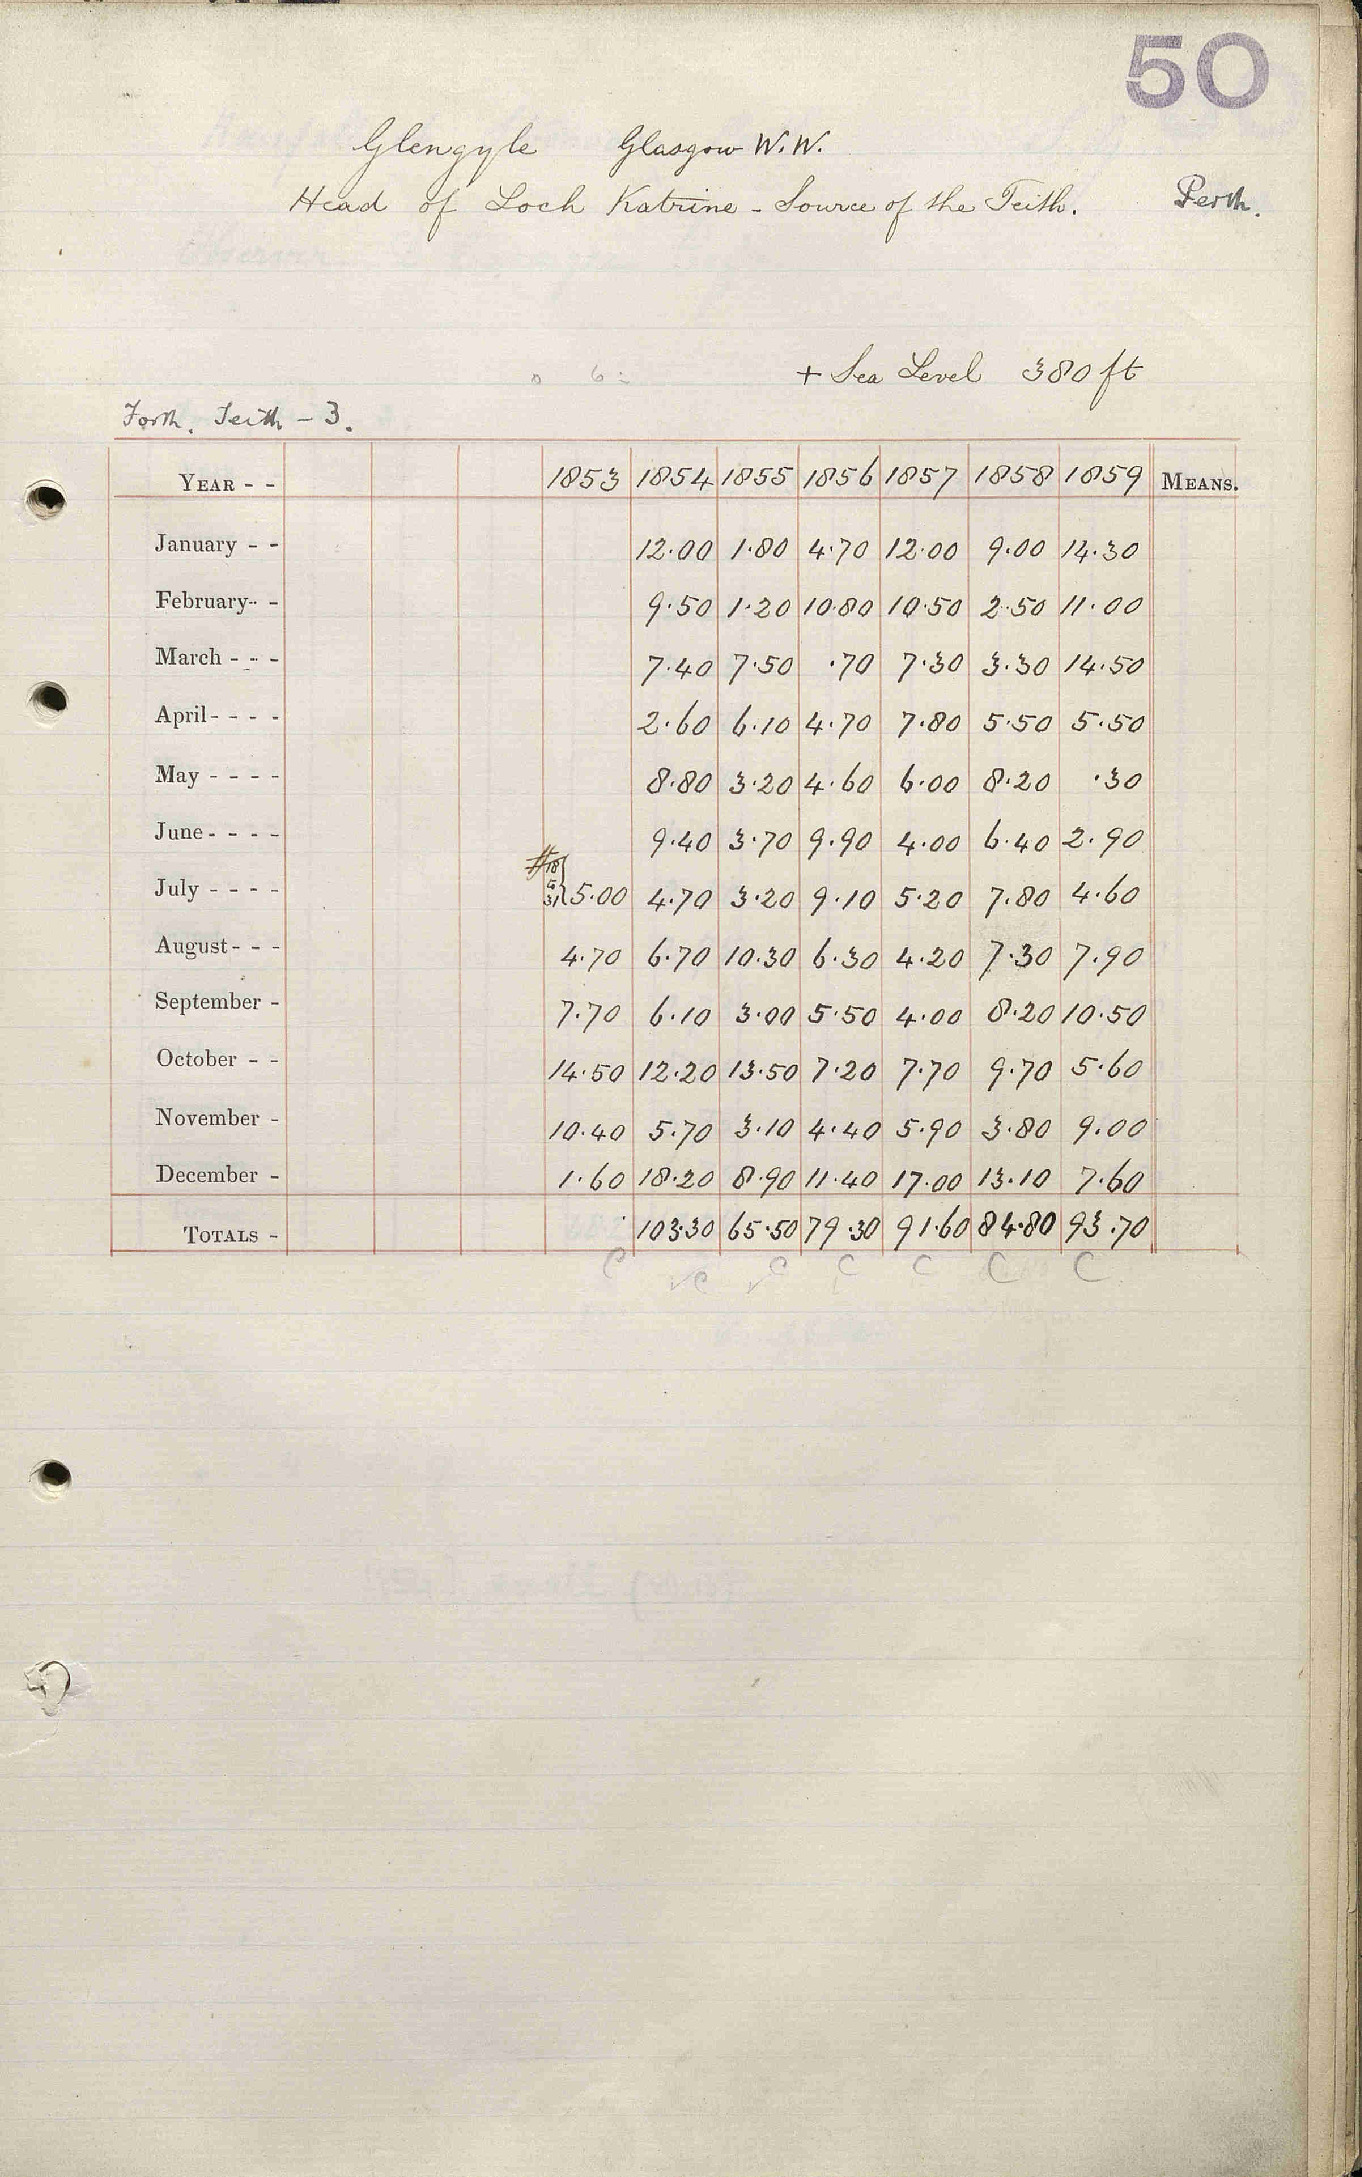 50
Glengyle Glasgow W.W.
Head of Loch Katrine - Source of the Teith. Perth.
+ Sea Level 380 ft
Forth. Teith - 3.
YEAR - - 1853 1854 1855 1856 1857 1858 1859 MEANS.
January - - 12.00 1.80 4.70 12.00 9.00 14.30
February - - 9.50 1.20 10.80 10.50 2.50 11.00
March - - - 7.40 7.50 .70 7.30 3.30 14.50
April - - - - 2.60 6.10 4.70 7.80 5.50 5.50
May - - - - 8.80 3.20 4.60 6.00 8.20 .30
June - - - - 9.40 3.70 9.90 4.00 6.40 2.90
July - - - - 5.00 4.70 3.20 9.10 5.20 7.80 4.60
August - - - 4.70 6.70 10.30 6.30 4.20 7.30 7.90
September - 7.70 6.10 3.00 5.50 4.00 8.20 10.50
October - - 14.50 12.20 13.50 7.20 7.70 9.70 5.60
November - 10.40 5.70 3.10 4.40 5.90 3.80 9.00
December - 1.60 18.20 8.90 11.40 17.00 13.10 7.60
TOTALS - 103.30 65.50 79.30 91.60 84.80 93.70
C C C C C C C